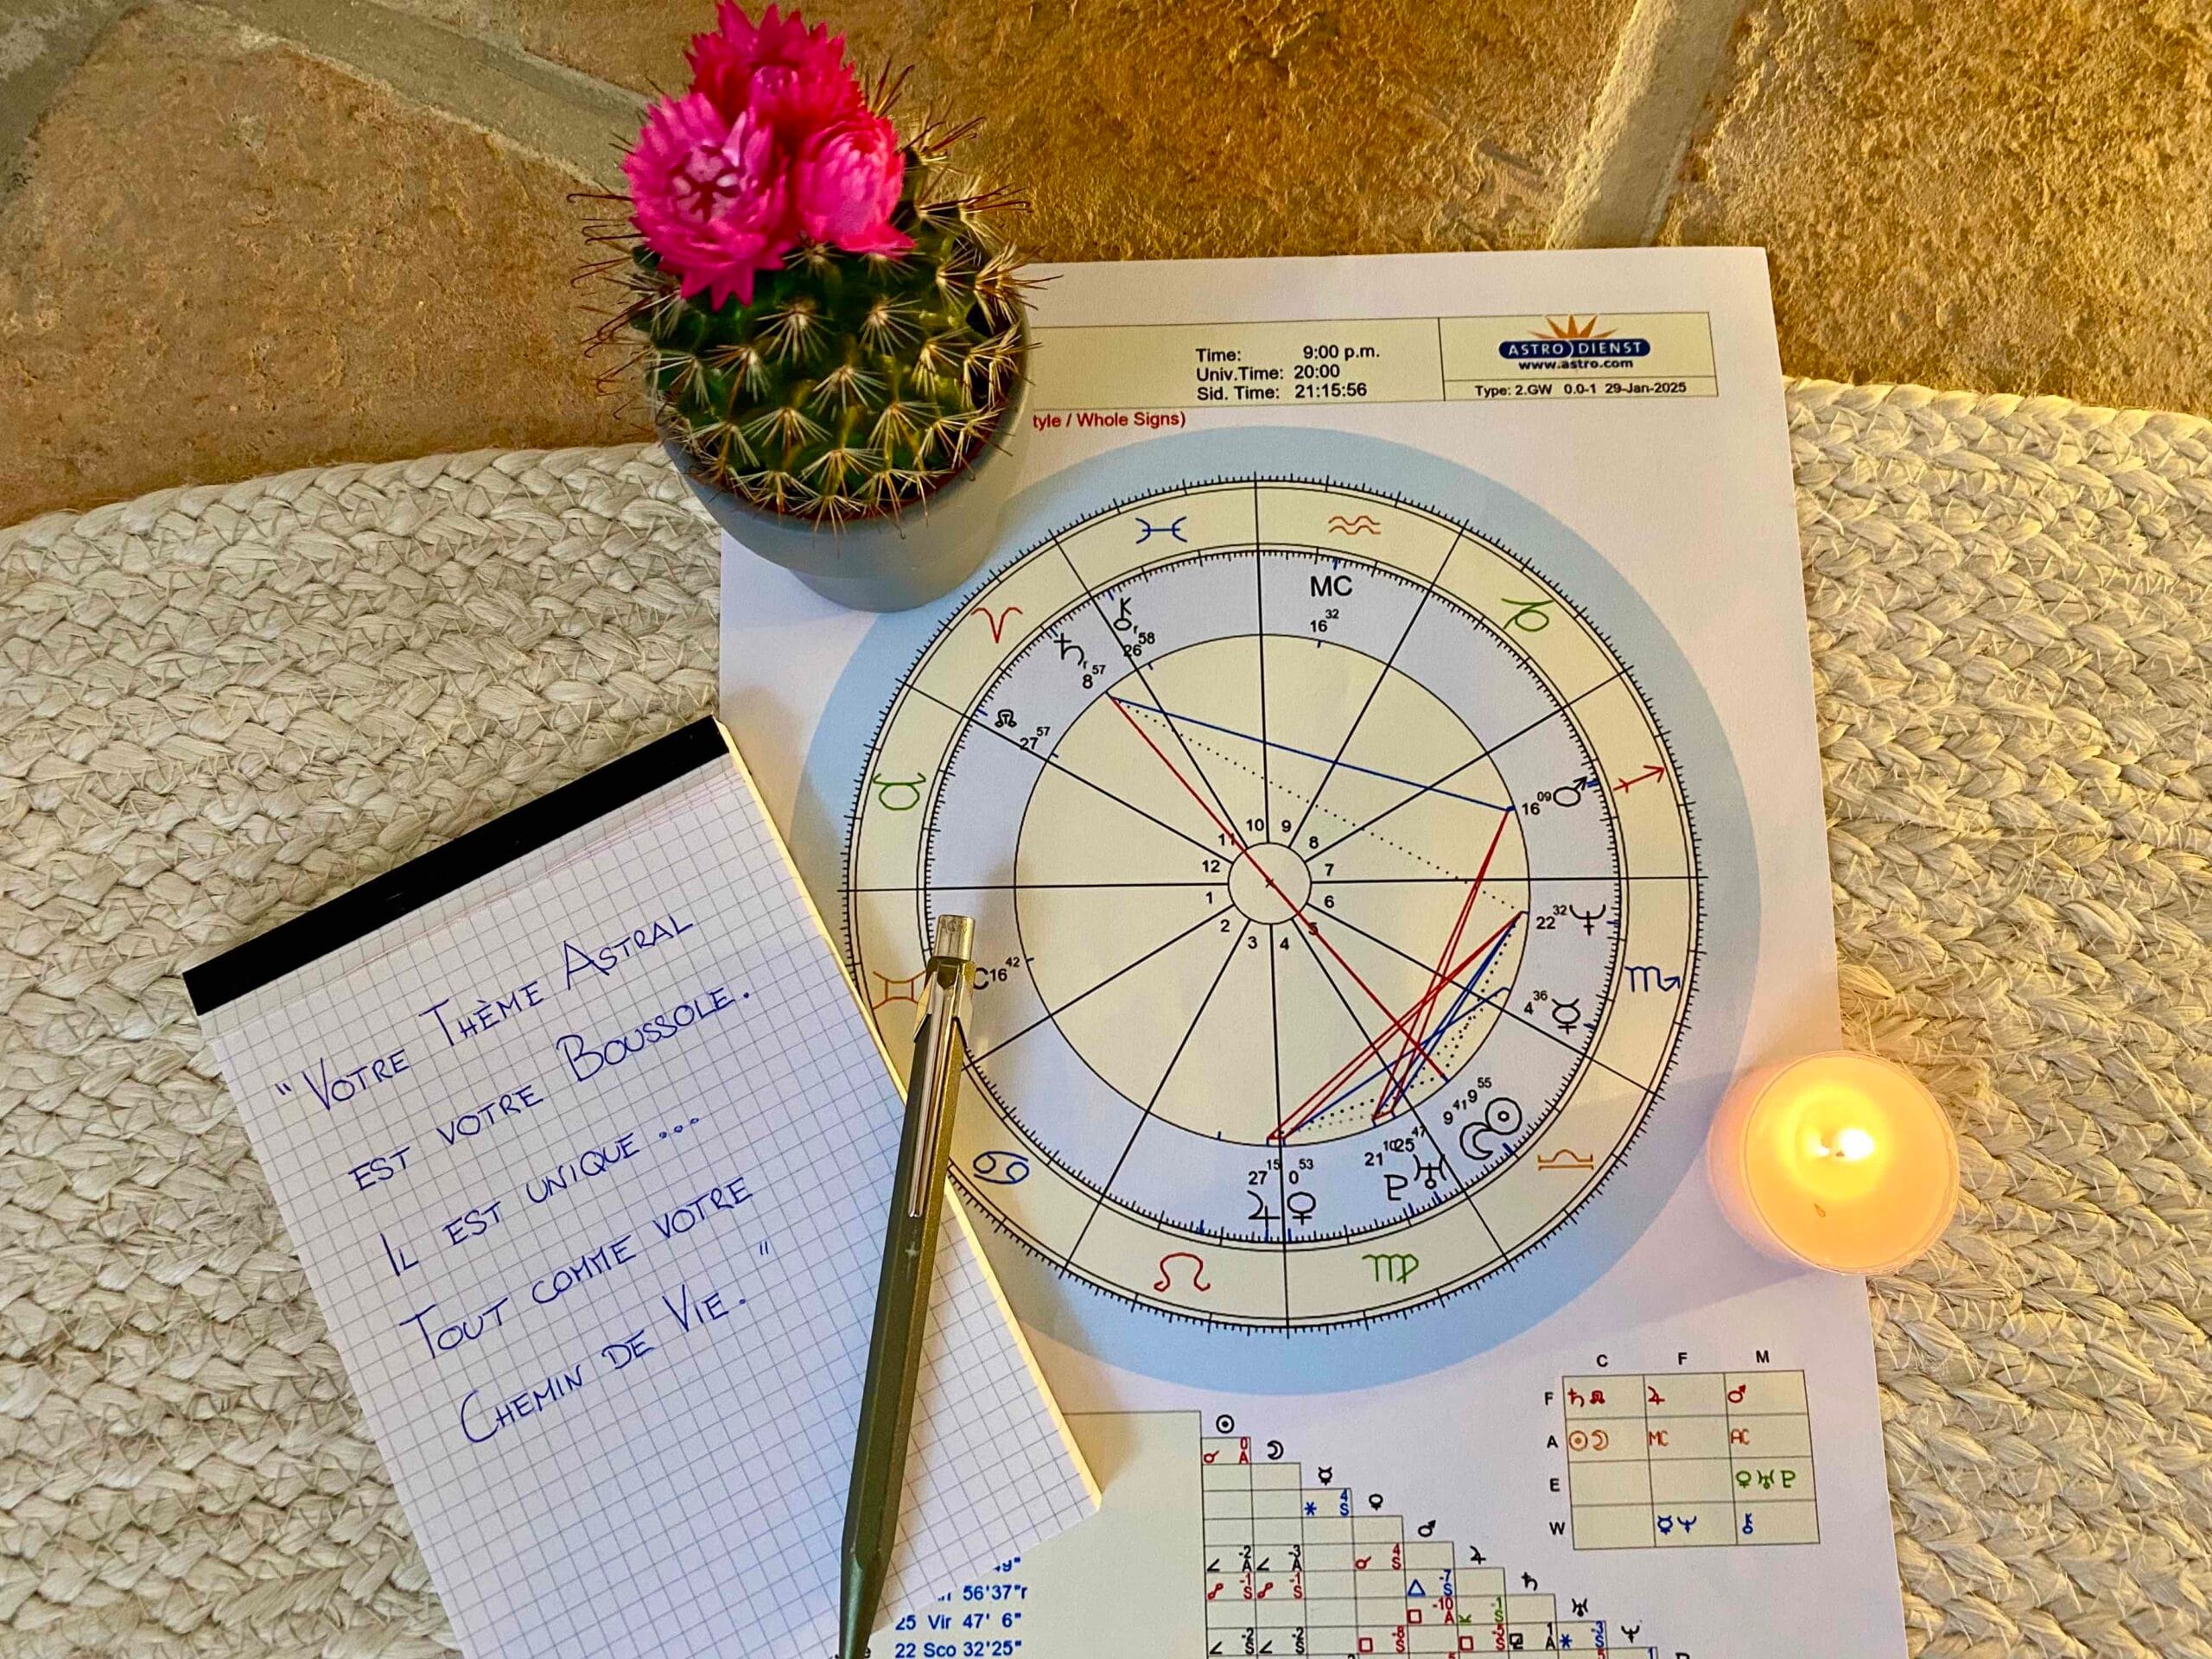 Time: 9:00 p.m.
Univ.Time: 20:00
Sid. Time: 21:15:56
ASTRO DIENST
www.astro.com
Type: 2.GW 0.0-1 29-Jan-2025
tyle / Whole Signs)
MC
16 32
26 58
8 57
27 57
16 09
22 32
4 36
9 55
9 41
25 47
21 10
0 53
27 15
C 16 42
10 9
11 8
12 7
1 6
2 5
3 4
"VOTRE THÈME ASTRAL
EST VOTRE BOUSSOLE.
IL EST UNIQUE ...
TOUT COMME VOTRE
CHEMIN DE VIE."
C F M
F
A MC AC
E
W
56'37"r
25 Vir 47' 6"
22 Sco 32'25"